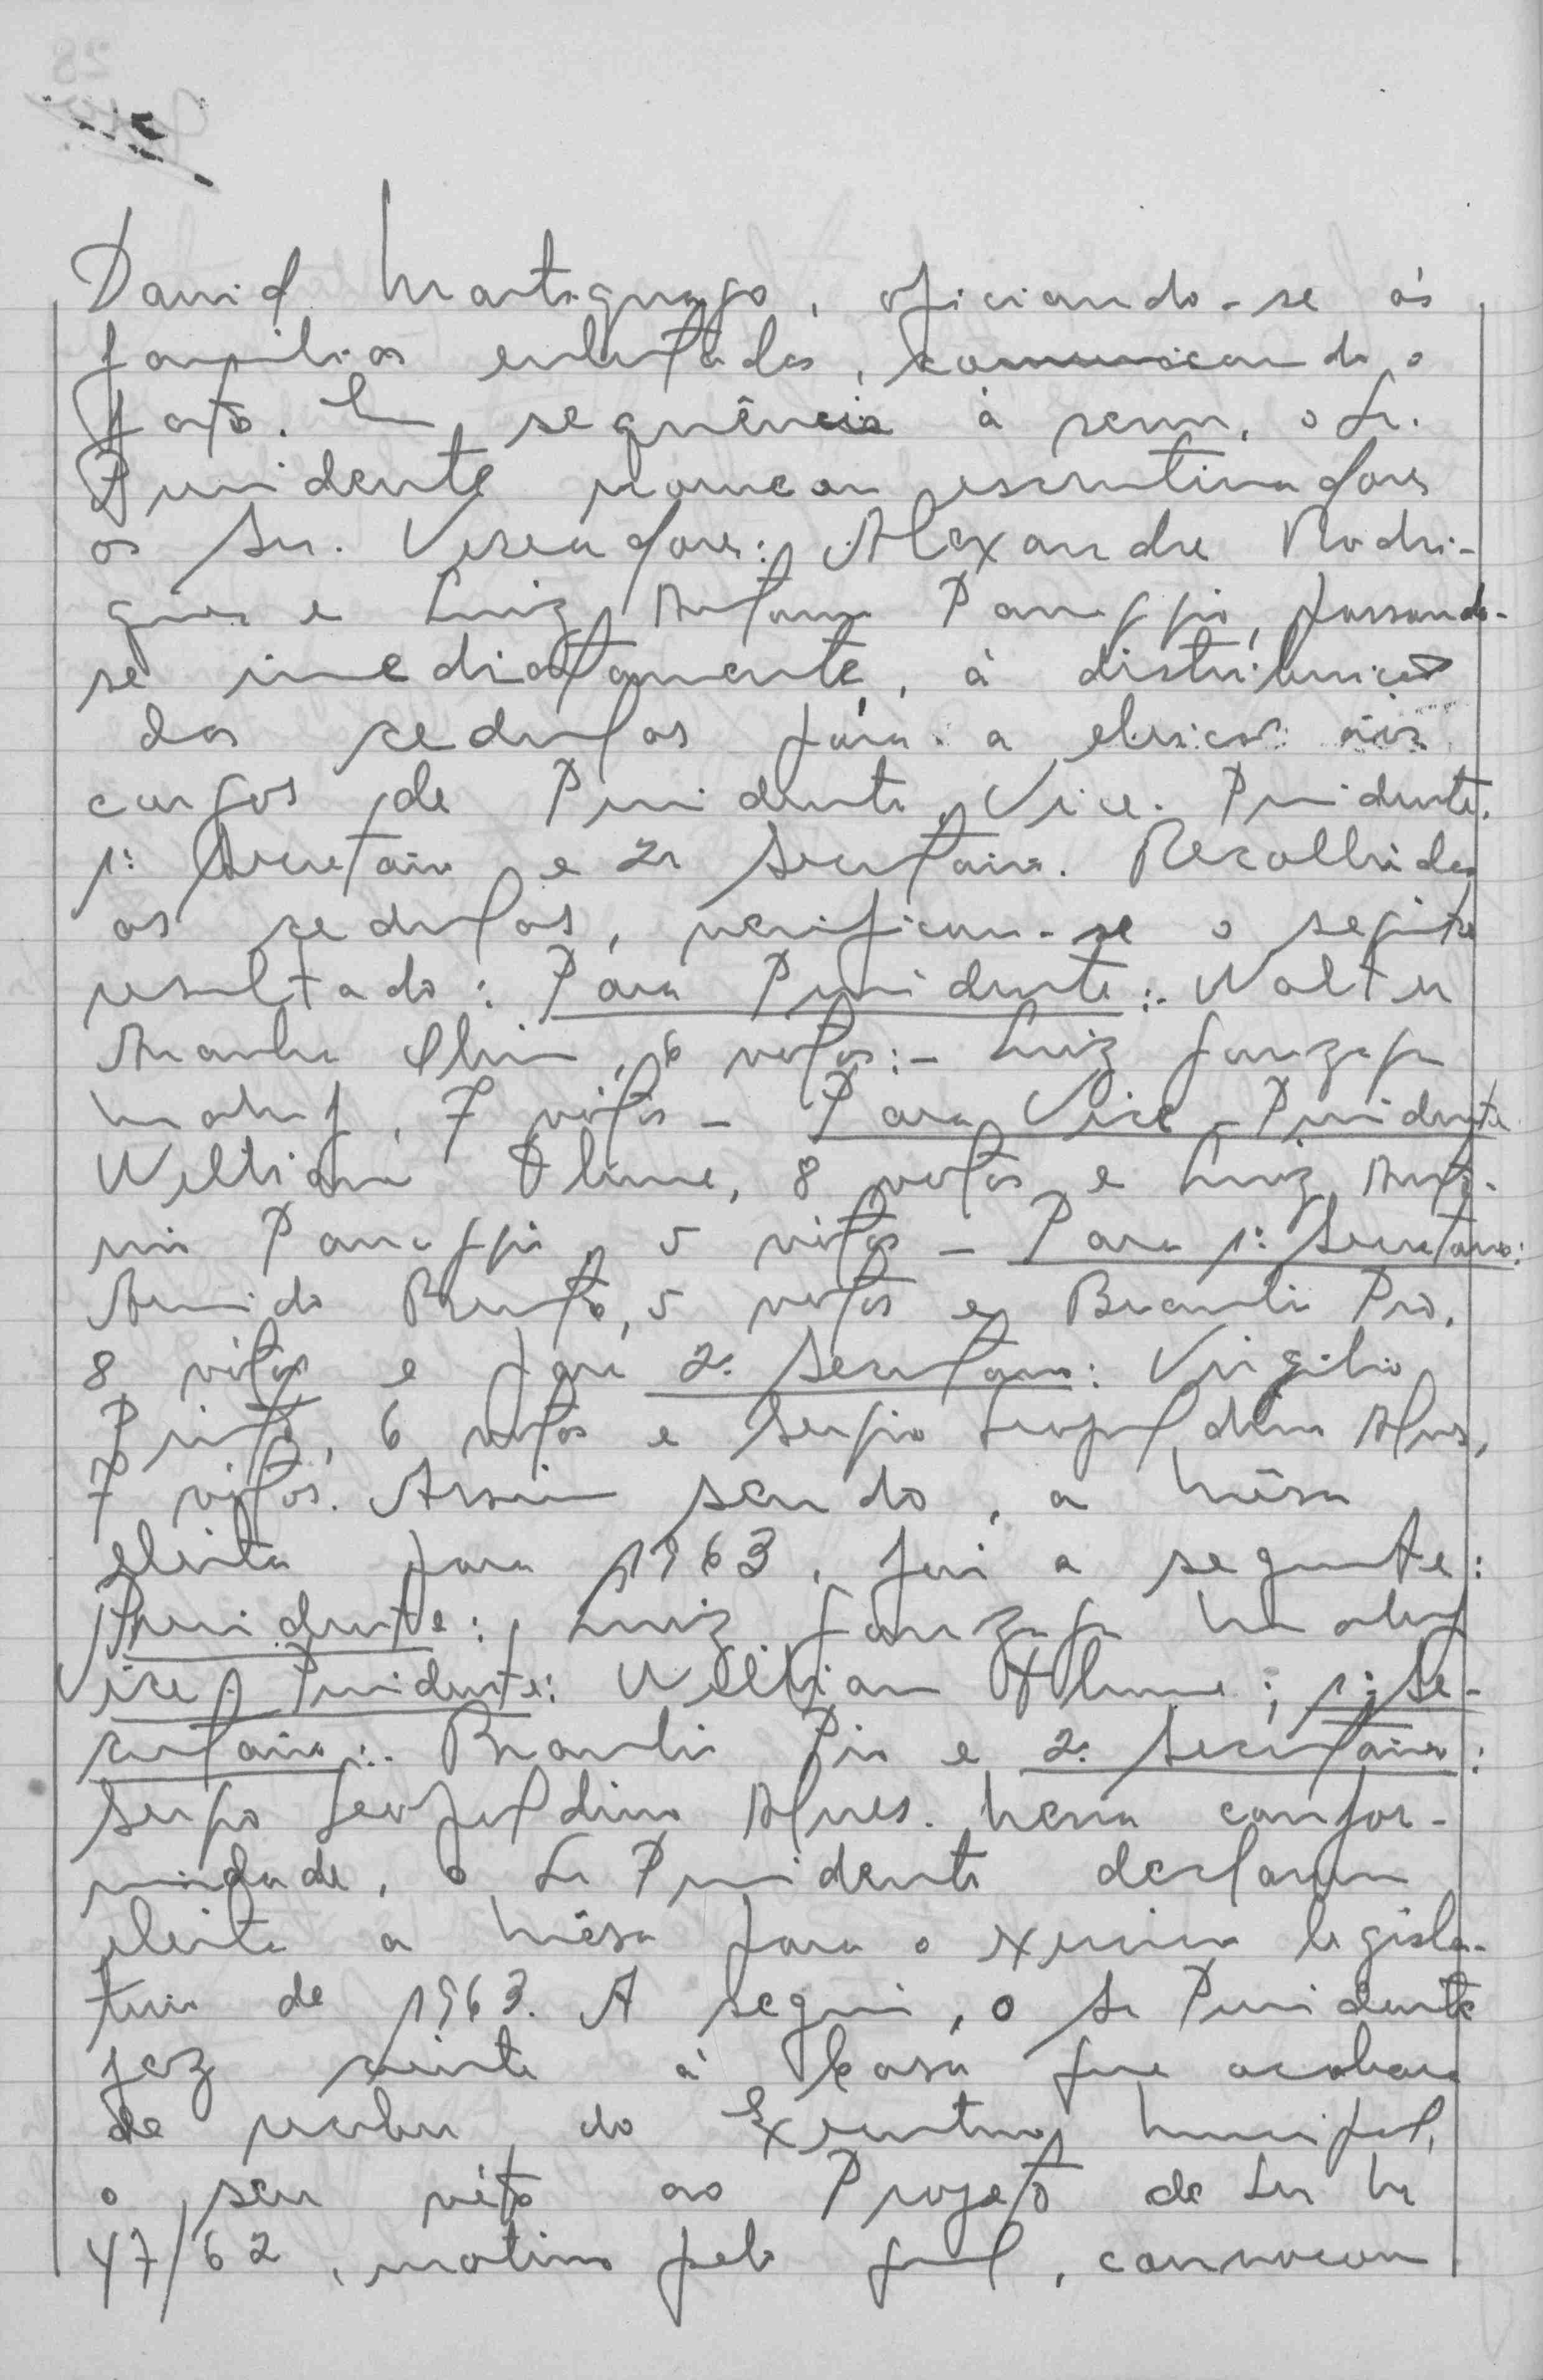 David Martignago, oficiando-se às
familias enlutadas, comunicando o
fato. Em sequência à sessão, o Sr.
Presidente nomeou escrutinadores
os Srs. Vereadores: Alexandre Rodri-
gues e Luiz Antonio Panuggio, passando-
se imediatamente, à distribuição
das cedulas para a eleição aos
cargos de Presidente, Vice-Presidente,
1º Secretario e 2º Secretario. Recolhidas
as cedulas, verificou-se o seguinte
resultado: Para Presidente:- Walter
6 votos:- Luiz Gonzaga
Maluf, 7 votos - Para Vice-Presidente
Willian 8 votos e Luiz Anto-
nio Panuggio, 5 votos - Para 1º Secretario:
5 votos e Braulio Pio,
8 votos e para 2º Secretario: Virgilio
Pinto, 6 votos e Sergio Leopoldino Alves,
7 votos. Assim sendo, a Mêsa
eleita para 1963, foi a seguinte:
Presidente: Luiz Gonzaga Maluf
Vice-Presidente: Willian ; 1º Se-
cretario:- Braulio Pio e 2º Secretario:
Sergio Leopoldino Alves. Nessa confor-
midade, o Sr Presidente declarou
eleita a Mêsa para o exercicio legisla-
tivo de 1963. A seguir, o Sr Presidente
fez ciente à Casa que acabara
de receber do Executivo Municipal,
o seu véto ao Projeto de Lei Nº
47/62, motivo pelo qual, convocou